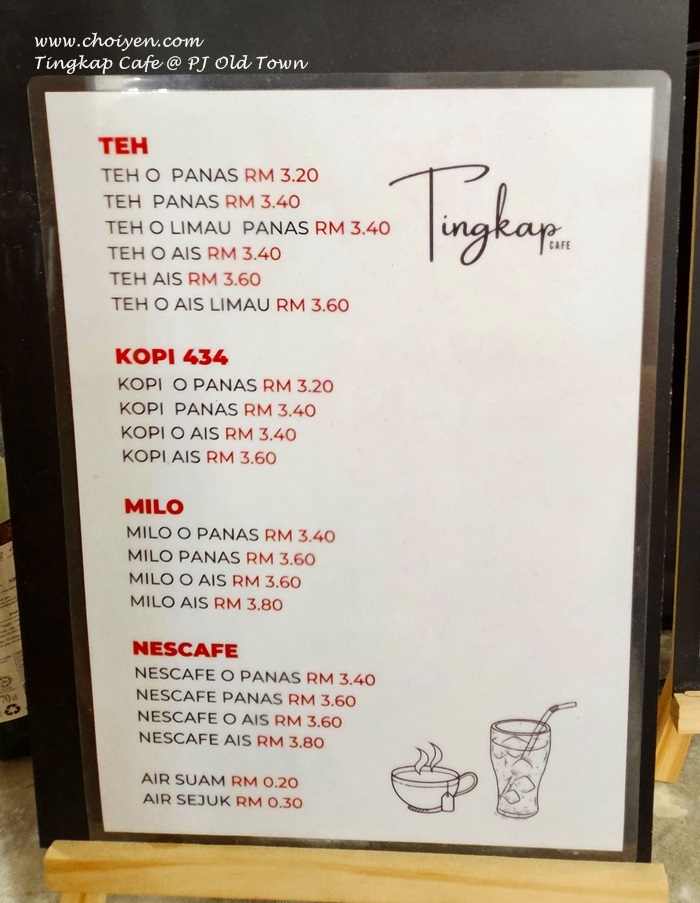 www.choiyen.com
Tingkap Cafe @ PJ Old Town
TEH
TEH O PANAS RM 3.20
TEH PANAS RM 3.40
TEH O LIMAU PANAS RM 3.40
TEH O AIS RM 3.40
TEH AIS RM 3.60
TEH O AIS LIMAU RM 3.60
Tingkap
CAFE
KOPI 434
KOPI O PANAS RM 3.20
KOPI PANAS RM 3.40
KOPI O AIS RM 3.40
KOPI AIS RM 3.60
MILO
MILO O PANAS RM 3.40
MILO PANAS RM 3.60
MILO O AIS RM 3.60
MILO AIS RM 3.80
NESCAFE
NESCAFE O PANAS RM 3.40
NESCAFE PANAS RM 3.60
NESCAFE O AIS RM 3.60
NESCAFE AIS RM 3.80
AIR SUAM RM 0.20
AIR SEJUK RM 0.30